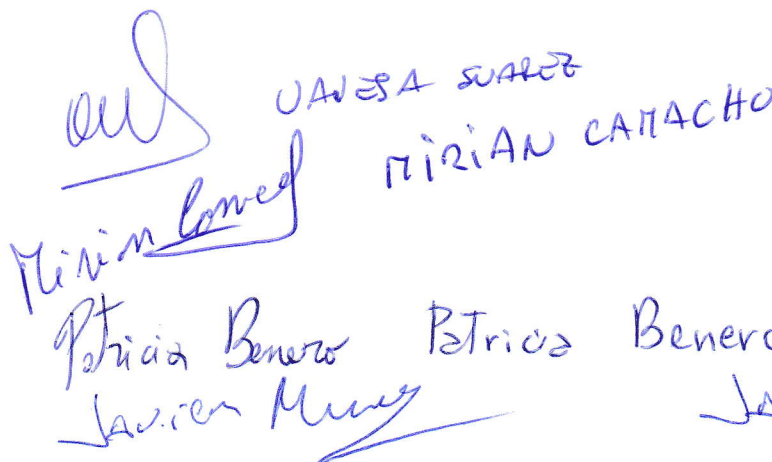 VANESA SUAREZ
MIRIAN CAMACHO
Mirian
Patricia Benero Patricia Benero
Javier